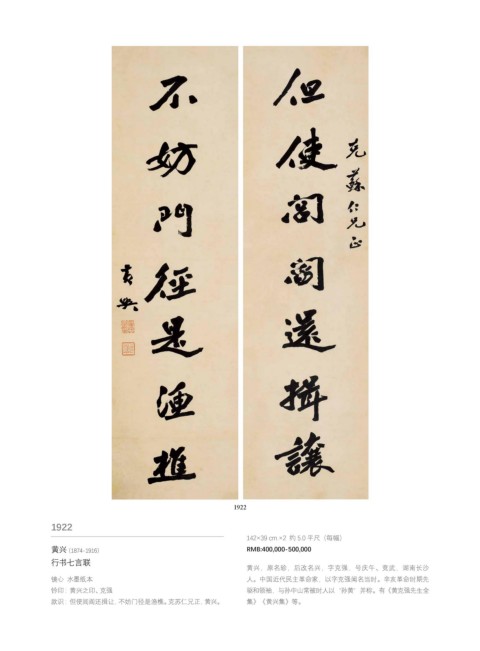 克蘇仁兄正
但使閭閻還揖讓
不妨門徑是漁樵
黃興
1922
1922
黄兴 (1874-1916)
行书七言联
镜心 水墨纸本
钤印：黄兴之印、克强
款识：但使闾阎还揖让，不妨门径是渔樵。克苏仁兄正，黄兴。
142×39 cm ×2 约 5.0 平尺（每幅）
RMB:400,000-500,000
黄兴，原名轸，后改名兴，字克强，号庆午、竞武，湖南长沙
人。中国近代民主革命家，以字克强闻名当时。辛亥革命时期先
驱和领袖，与孙中山常被时人以“孙黄”并称。有《黄克强先生全
集》《黄兴集》等。